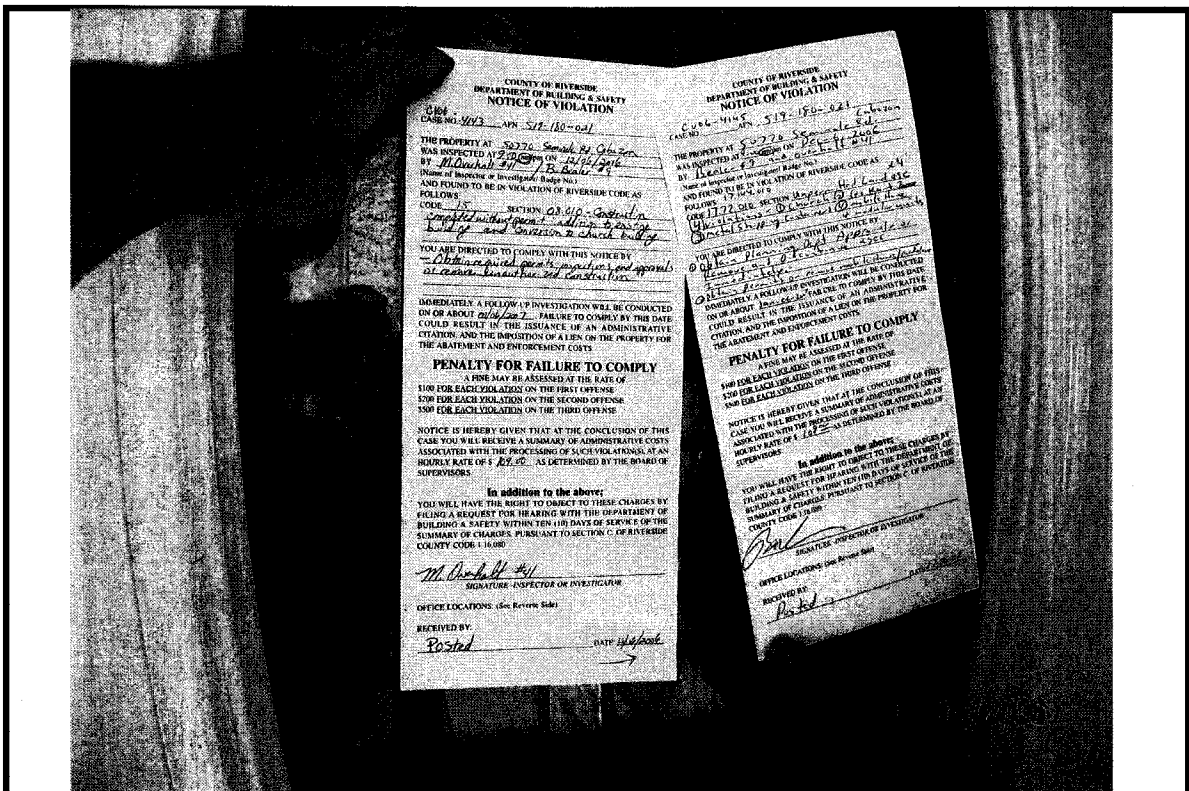 COUNTY OF RIVERSIDE
DEPARTMENT OF BUILDING & SAFETY
NOTICE OF VIOLATION
CV06
CASE NO. 4143 APN 519-180-021
THE PROPERTY AT 50770 Seminole Rd Cabazon
WAS INSPECTED AT ON 12/06/2006
BY M. Overholt #41 / B. Beeler #9
(Name of Inspector or Investigator/ Badge No.)
AND FOUND TO BE IN VIOLATION OF RIVERSIDE CODE AS
FOLLOWS
CODE 15 SECTION 08.010 - Construction
completed without permit - addition to existing
building and conversion to church building
YOU ARE DIRECTED TO COMPLY WITH THIS NOTICE BY
- Obtain required permits, inspections, and approvals
or remove unauthorized construction
IMMEDIATELY. A FOLLOW-UP INVESTIGATION WILL BE CONDUCTED
ON OR ABOUT 01/06/2007. FAILURE TO COMPLY BY THIS DATE
COULD RESULT IN THE ISSUANCE OF AN ADMINISTRATIVE
CITATION, AND THE IMPOSITION OF A LIEN ON THE PROPERTY FOR
THE ABATEMENT AND ENFORCEMENT COSTS
PENALTY FOR FAILURE TO COMPLY
A FINE MAY BE ASSESSED AT THE RATE OF
$100 FOR EACH VIOLATION ON THE FIRST OFFENSE
$200 FOR EACH VIOLATION ON THE SECOND OFFENSE
$500 FOR EACH VIOLATION ON THE THIRD OFFENSE
NOTICE IS HEREBY GIVEN THAT AT THE CONCLUSION OF THIS
CASE YOU WILL RECEIVE A SUMMARY OF ADMINISTRATIVE COSTS
ASSOCIATED WITH THE PROCESSING OF SUCH VIOLATION(S), AT AN
HOURLY RATE OF $ 109.00 AS DETERMINED BY THE BOARD OF
SUPERVISORS
In addition to the above;
YOU WILL HAVE THE RIGHT TO OBJECT TO THESE CHARGES BY
FILING A REQUEST FOR HEARING WITH THE DEPARTMENT OF
BUILDING & SAFETY WITHIN TEN (10) DAYS OF SERVICE OF THE
SUMMARY OF CHARGES, PURSUANT TO SECTION C. OF RIVERSIDE
COUNTY CODE 1.16.080
M. Overholt #41
SIGNATURE -INSPECTOR OR INVESTIGATOR
OFFICE LOCATIONS: (See Reverse Side)
RECEIVED BY:
Posted DATE
COUNTY OF RIVERSIDE
DEPARTMENT OF BUILDING & SAFETY
NOTICE OF VIOLATION
CASE NO. CV06-4145 APN 519-180-021
THE PROPERTY AT 50770 Seminole Rd. Cabazon
WAS INSPECTED AT ON 2006
BY Beeler #9 and Overholt #41
(Name of Inspector or Investigator/ Badge No.)
AND FOUND TO BE IN VIOLATION OF RIVERSIDE CODE AS
FOLLOWS
CODE 17.72.010 SECTION Unpermitted Land use
YOU ARE DIRECTED TO COMPLY WITH THIS NOTICE BY
Obtain Planning Dept. Approvals or
IMMEDIATELY. A FOLLOW-UP INVESTIGATION WILL BE CONDUCTED
ON OR ABOUT FAILURE TO COMPLY BY THIS DATE
COULD RESULT IN THE ISSUANCE OF AN ADMINISTRATIVE
CITATION, AND THE IMPOSITION OF A LIEN ON THE PROPERTY FOR
THE ABATEMENT AND ENFORCEMENT COSTS
PENALTY FOR FAILURE TO COMPLY
A FINE MAY BE ASSESSED AT THE RATE OF
$100 FOR EACH VIOLATION ON THE FIRST OFFENSE
$200 FOR EACH VIOLATION ON THE SECOND OFFENSE
$500 FOR EACH VIOLATION ON THE THIRD OFFENSE
NOTICE IS HEREBY GIVEN THAT AT THE CONCLUSION OF THIS
CASE YOU WILL RECEIVE A SUMMARY OF ADMINISTRATIVE COSTS
ASSOCIATED WITH THE PROCESSING OF SUCH VIOLATION(S), AT AN
HOURLY RATE OF $ AS DETERMINED BY THE BOARD OF
SUPERVISORS
In addition to the above;
YOU WILL HAVE THE RIGHT TO OBJECT TO THESE CHARGES BY
FILING A REQUEST FOR HEARING WITH THE DEPARTMENT OF
BUILDING & SAFETY WITHIN TEN (10) DAYS OF SERVICE OF THE
SUMMARY OF CHARGES, PURSUANT TO SECTION C. OF RIVERSIDE
COUNTY CODE 1.16.080
SIGNATURE -INSPECTOR OR INVESTIGATOR
OFFICE LOCATIONS: (See Reverse Side)
RECEIVED BY: DATE
Posted